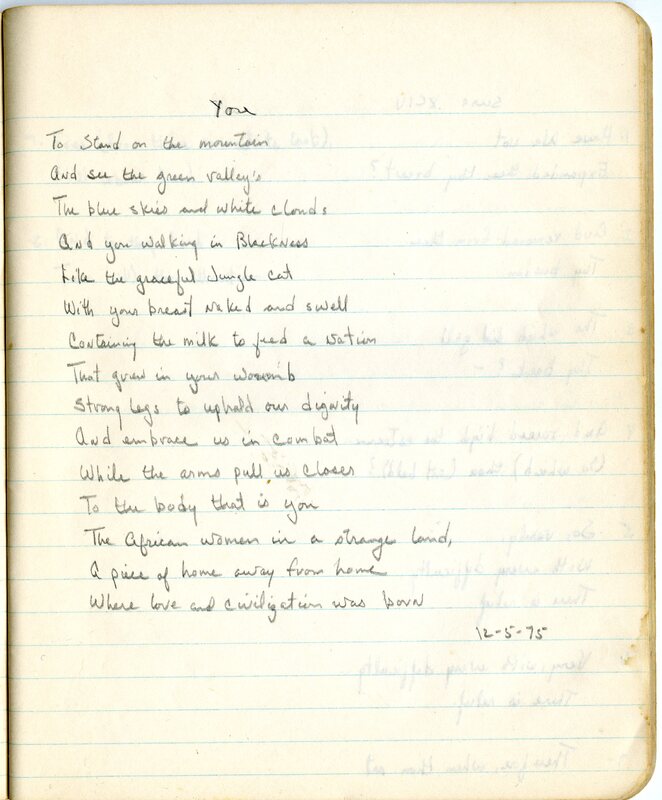 You
To Stand on the mountain
And see the green valley's
The blue skies and white clouds
And you walking in Blackness
Like the graceful Jungle cat
With your breast Naked and swell
Containing the milk to feed a Nation
That grew in your woomb
Strong legs to uphold our dignity
And embrace us in combat
While the arms pull us closer
To the body that is you
The African women in a strange land,
A piece of home away from home
Where love and civilization was born
12-5-75